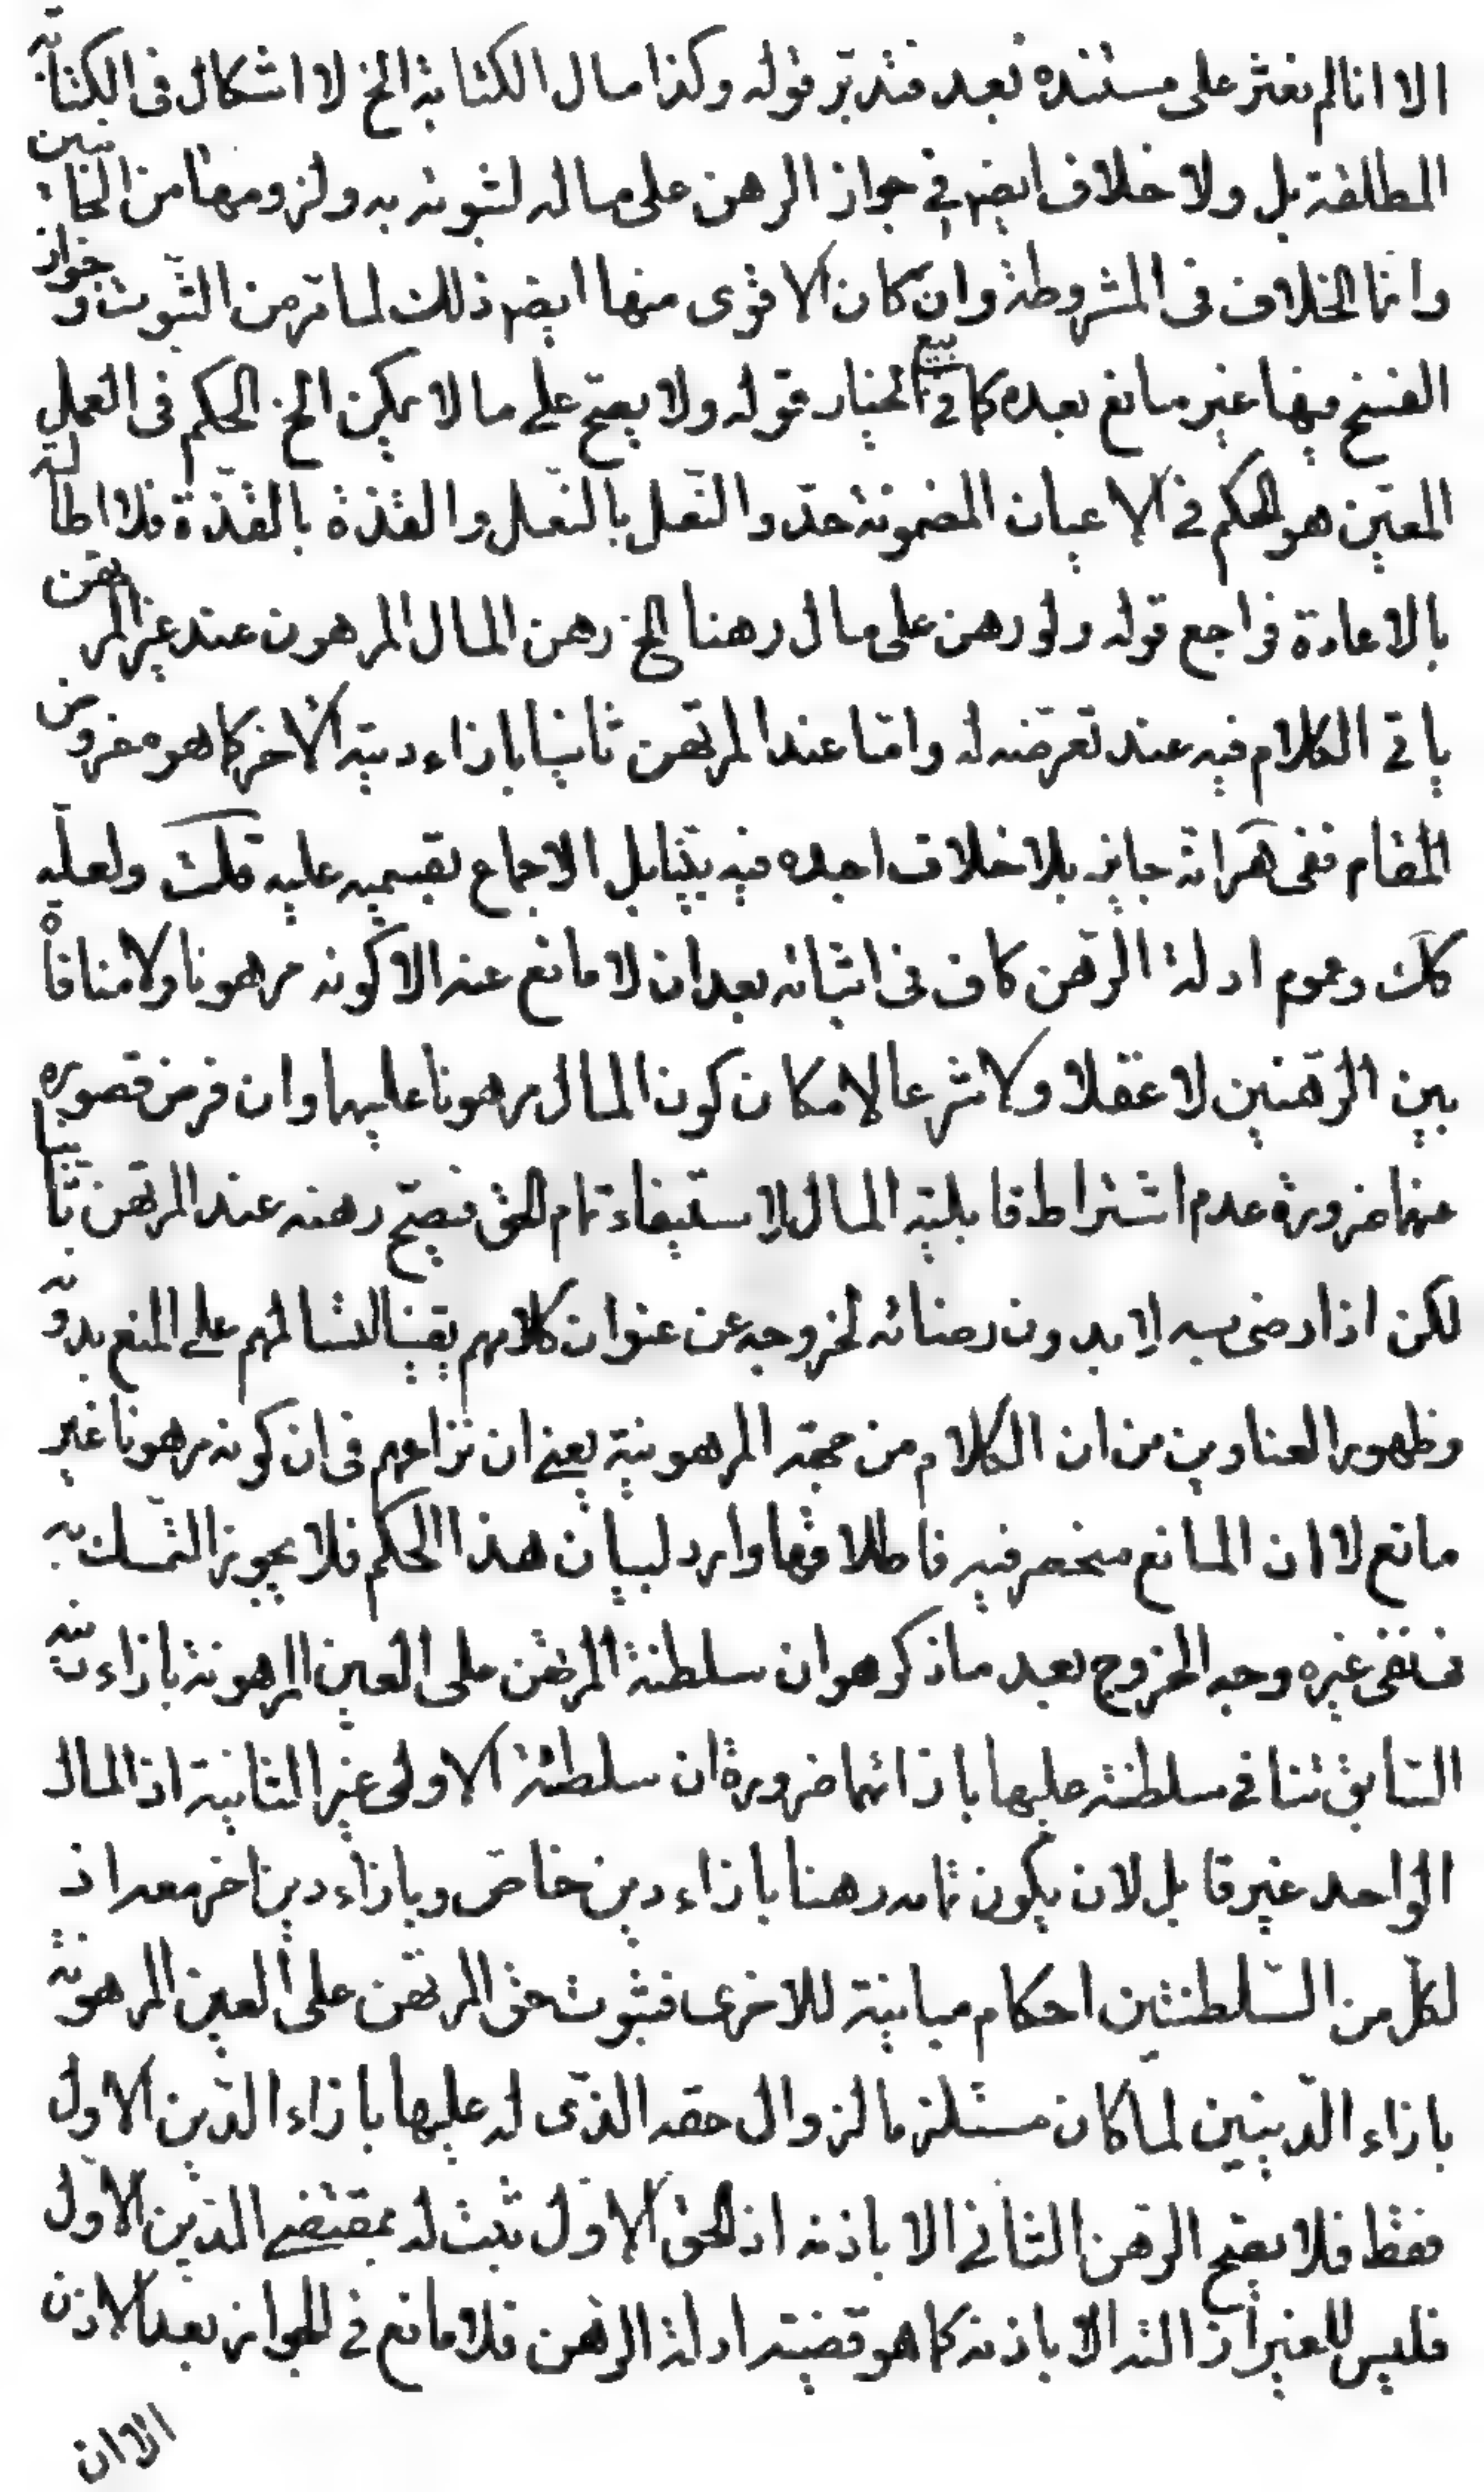 الا انا لم نعثر على مستنده بعد فتدبر قوله وكذا مال الكتابة الخ لا اشكال فى الكتابة
المطلقة بل ولا خلاف ايضا فى جواز الرهن على ماله لثبوته به ولزومها من الجانبين
وانما الخلاف فى المشروطة وان كان الاقوى منها ايضا ذلك لما مر من الثبوت وجواز
الفسخ فيها غير مانع بعده كما فى بيع الخيار قوله ولا يصح على ما لا يمكن الخ الحكم فى العمل
المعين هو الحكم فى الاعيان المضمونة حذو النعل بالنعل والقذة بالقذة فلا اطالة
بالاعادة فراجع قوله ولو رهن على مال رهنا الخ رهن المال المرهون عند غير المرتهن
ياتى الكلام فيه عند تعرضه له واما عند المرتهن ثانيا بازاء دينه الاخر كما هو مفروض
المقام ففى هر انه جايز بلا خلاف اجده فيه بيننا بل الاجماع بقسميه عليه قلت ولعله
كك وعموم ادلة الرهن كاف فى اثباته بعد ان لا مانع عنه الا كونه مرهونا ولا منافاة
بين الرهنين لا عقلا ولا شرعا لامكان كون المال مرهونا عليهما وان فرض قصوره
عنهما ضرورة عدم اشتراط قابلية المال لاستيفاء تمام الحق فيصح رهنه عند المرتهن ثانيا
لكن اذا رضى به لا بدون رضائه لخروجه عن عنوان كلامهم يقينا لتسالمهم على المنع بدونه
وظهور العناوين من ان الكلام من جهة المرهونية يعنى ان نزاعهم فى ان كونه مرهونا غير
مانع لا ان المانع منحصر فيه فاطلاقها وارد لبيان هذا الحكم فلا يجوز التمسك به
فى نفى غيره وجه الخروج بعد ما ذكر هو ان سلطنة المرتهن على العين المرهونة بازاء دينه
السابق تنافى سلطنته عليها بازائهما ضرورة ان سلطنة الاولى غير الثانية اذ المال
الواحد غير قابل لان يكون تمامه رهنا بازاء دين خاص وبازاء دين اخر معه اذ
لكل من السلطنتين احكام مباينة للاخرى فثبوت حق المرتهن على العين المرهونة
بازاء الدينين لما كان مستلزما لزوال حقه الذى له عليها بازاء الدين الاول
فقط فلا يصح الرهن الثانى الا باذنه اذ الحق الاول ثبت له بمقتضى الدين الاول
فليس للغير ازالته الا باذنه كما هو قضية ادلة الرهن فلا مانع فى الجواز بعد الاذن
الا ان